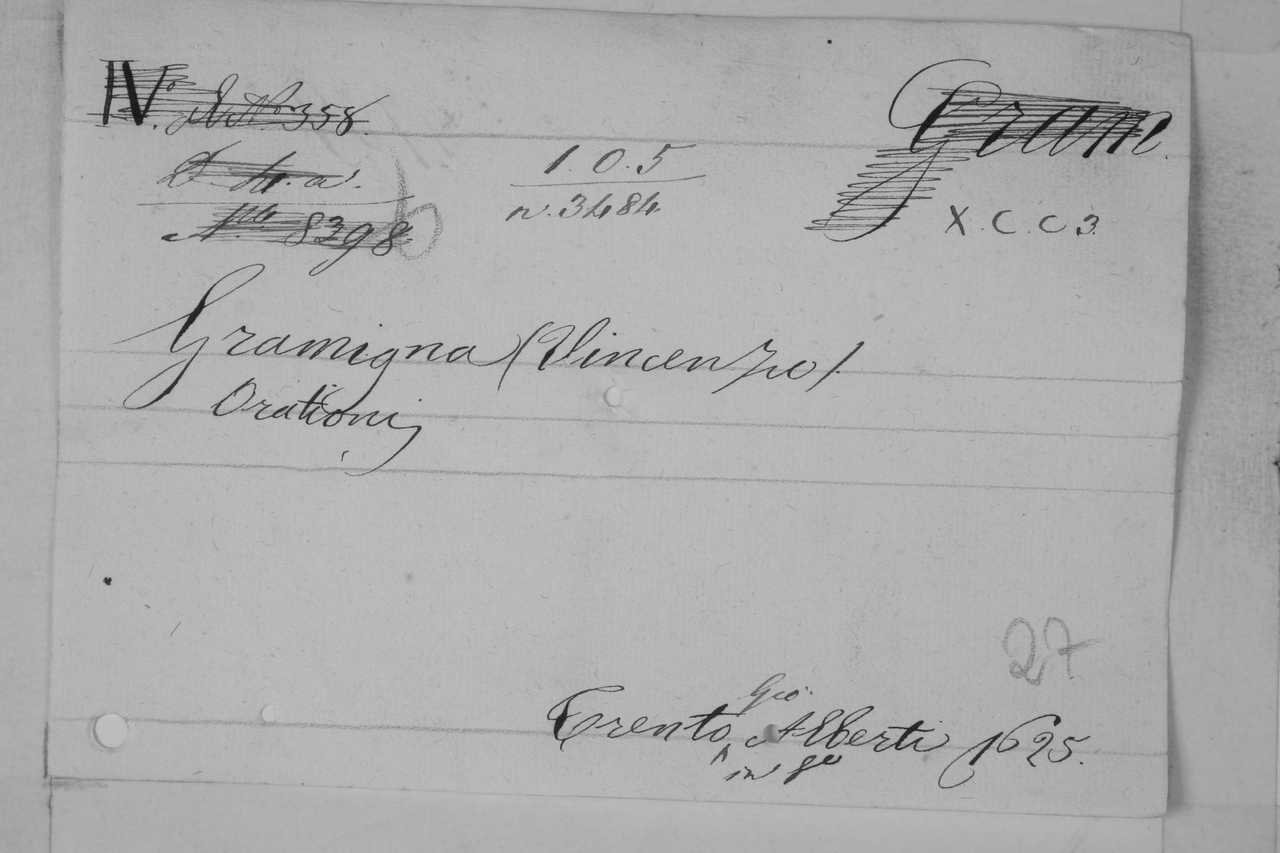 IV. N.º 358.
Gram.
D. 4. a.
1. 0. 5
N.º 8398
b
n. 3484
X. C. C 3.
Gramigna (Vincenzo)
Orationi
27
Trento Gio. Alberti 1625.
in 8º